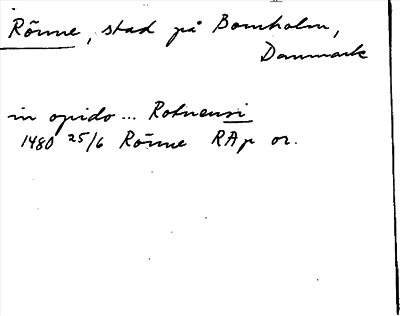 Rönne, stad på Bornholm,
Danmark
in opido ... Rotnensi
1480 25/6 Rönne RAp or.